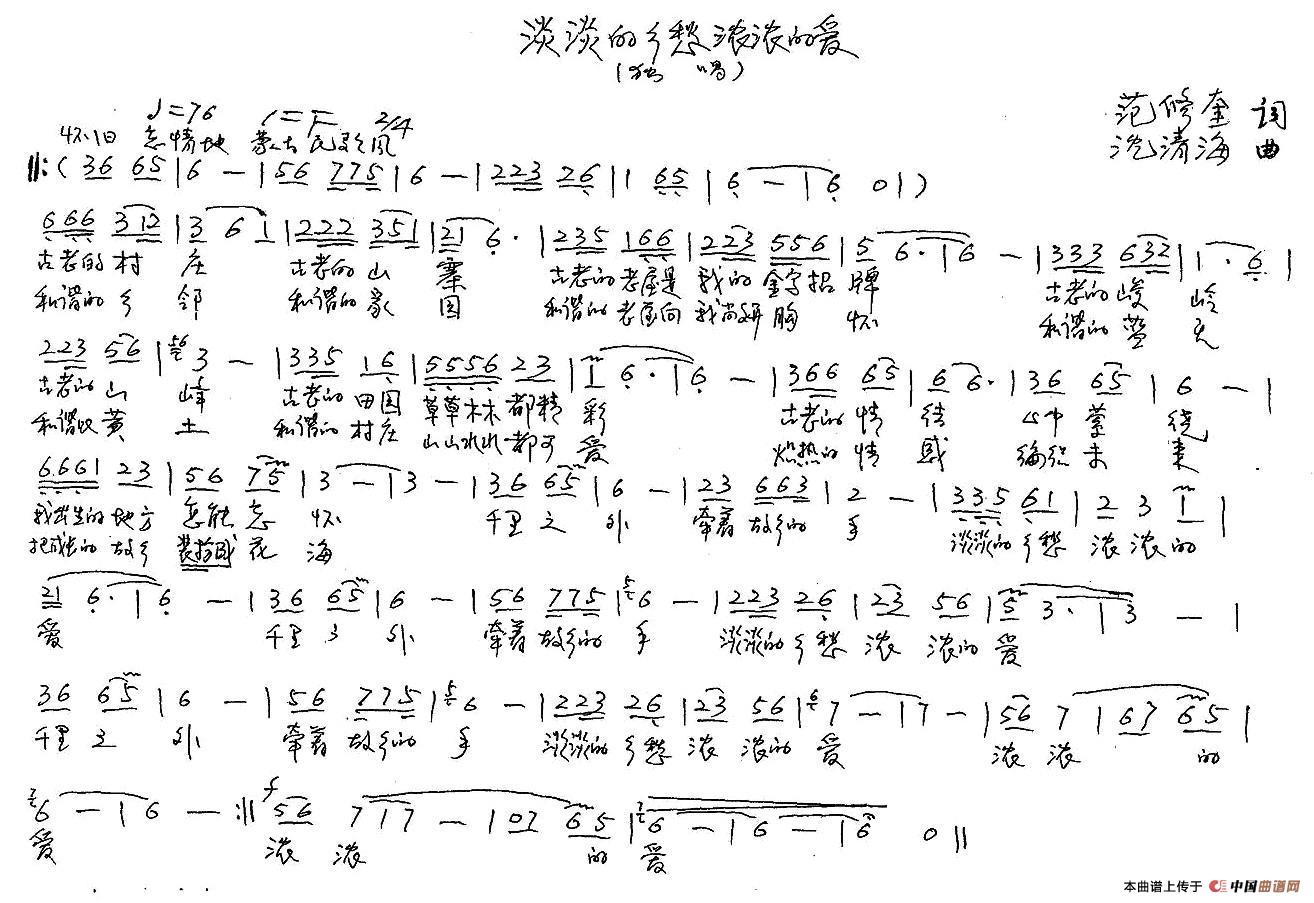 淡淡的乡愁浓浓的爱
(独 唱)
范修奎 词
沈清海 曲
♩=76 1=F 2/4
怀旧 忘情地 蒙古民歌风
‖:( 36 65 | 6 - | 56 775 | 6 - | 223 26 | 1 65 | 6 - | 6 0 | )
666 312 | 3 6 1 | 222 351 | 21 6· | 235 166 | 223 556 | 5 6· | 6 - | 333 632 | 1· 6 |
古老的村 庄 古老的山 寨 古老的老屋是 我的金字招 牌 古老的峻 岭
和谐的乡 邻 和谐的家 园 和谐的老屋向 我尚妍胸 怀 和谐的蓝 天
223 56 | 3 - | 335 16 | 5556 23 | 1 6· | 6 - | 366 65 | 6 6· | 36 65 | 6 - |
古老的山 峰 古老的田园 草草木木都精 彩 古老的情 结 心中萦 绕
和谐的黄 土 和谐的村庄 山山水水都可 爱 炽热的情 感 编织未 来
6661 23 | 56 75 | 3 - | 3 - | 36 65 | 6 - | 23 663 | 2 - | 335 61 | 2 3 1 |
我出生的地方 怎能忘 怀 千里之 外 牵着故乡的 手 淡淡的乡愁 浓浓的
把成长的故乡 装扮成花 海
21 6· | 6 - | 36 65 | 6 - | 56 775 | 6 - | 223 26 | 23 56 | 5 3· | 3 - |
爱 千里之 外 牵着故乡的 手 淡淡的乡愁 浓 浓的 爱
36 65 | 6 - | 56 775 | 6 - | 223 26 | 23 56 | 7 - | 7 - | 56 7 | 67 65 |
千里之 外 牵着故乡的 手 淡淡的乡愁 浓 浓的 爱 浓 浓 的
6 - | 6 - :‖ f 56 7 | 7 - | 07 65 | 6 - | 6 - | 6 0 ‖
爱 浓 浓 的 爱
本曲谱上传于 中国曲谱网